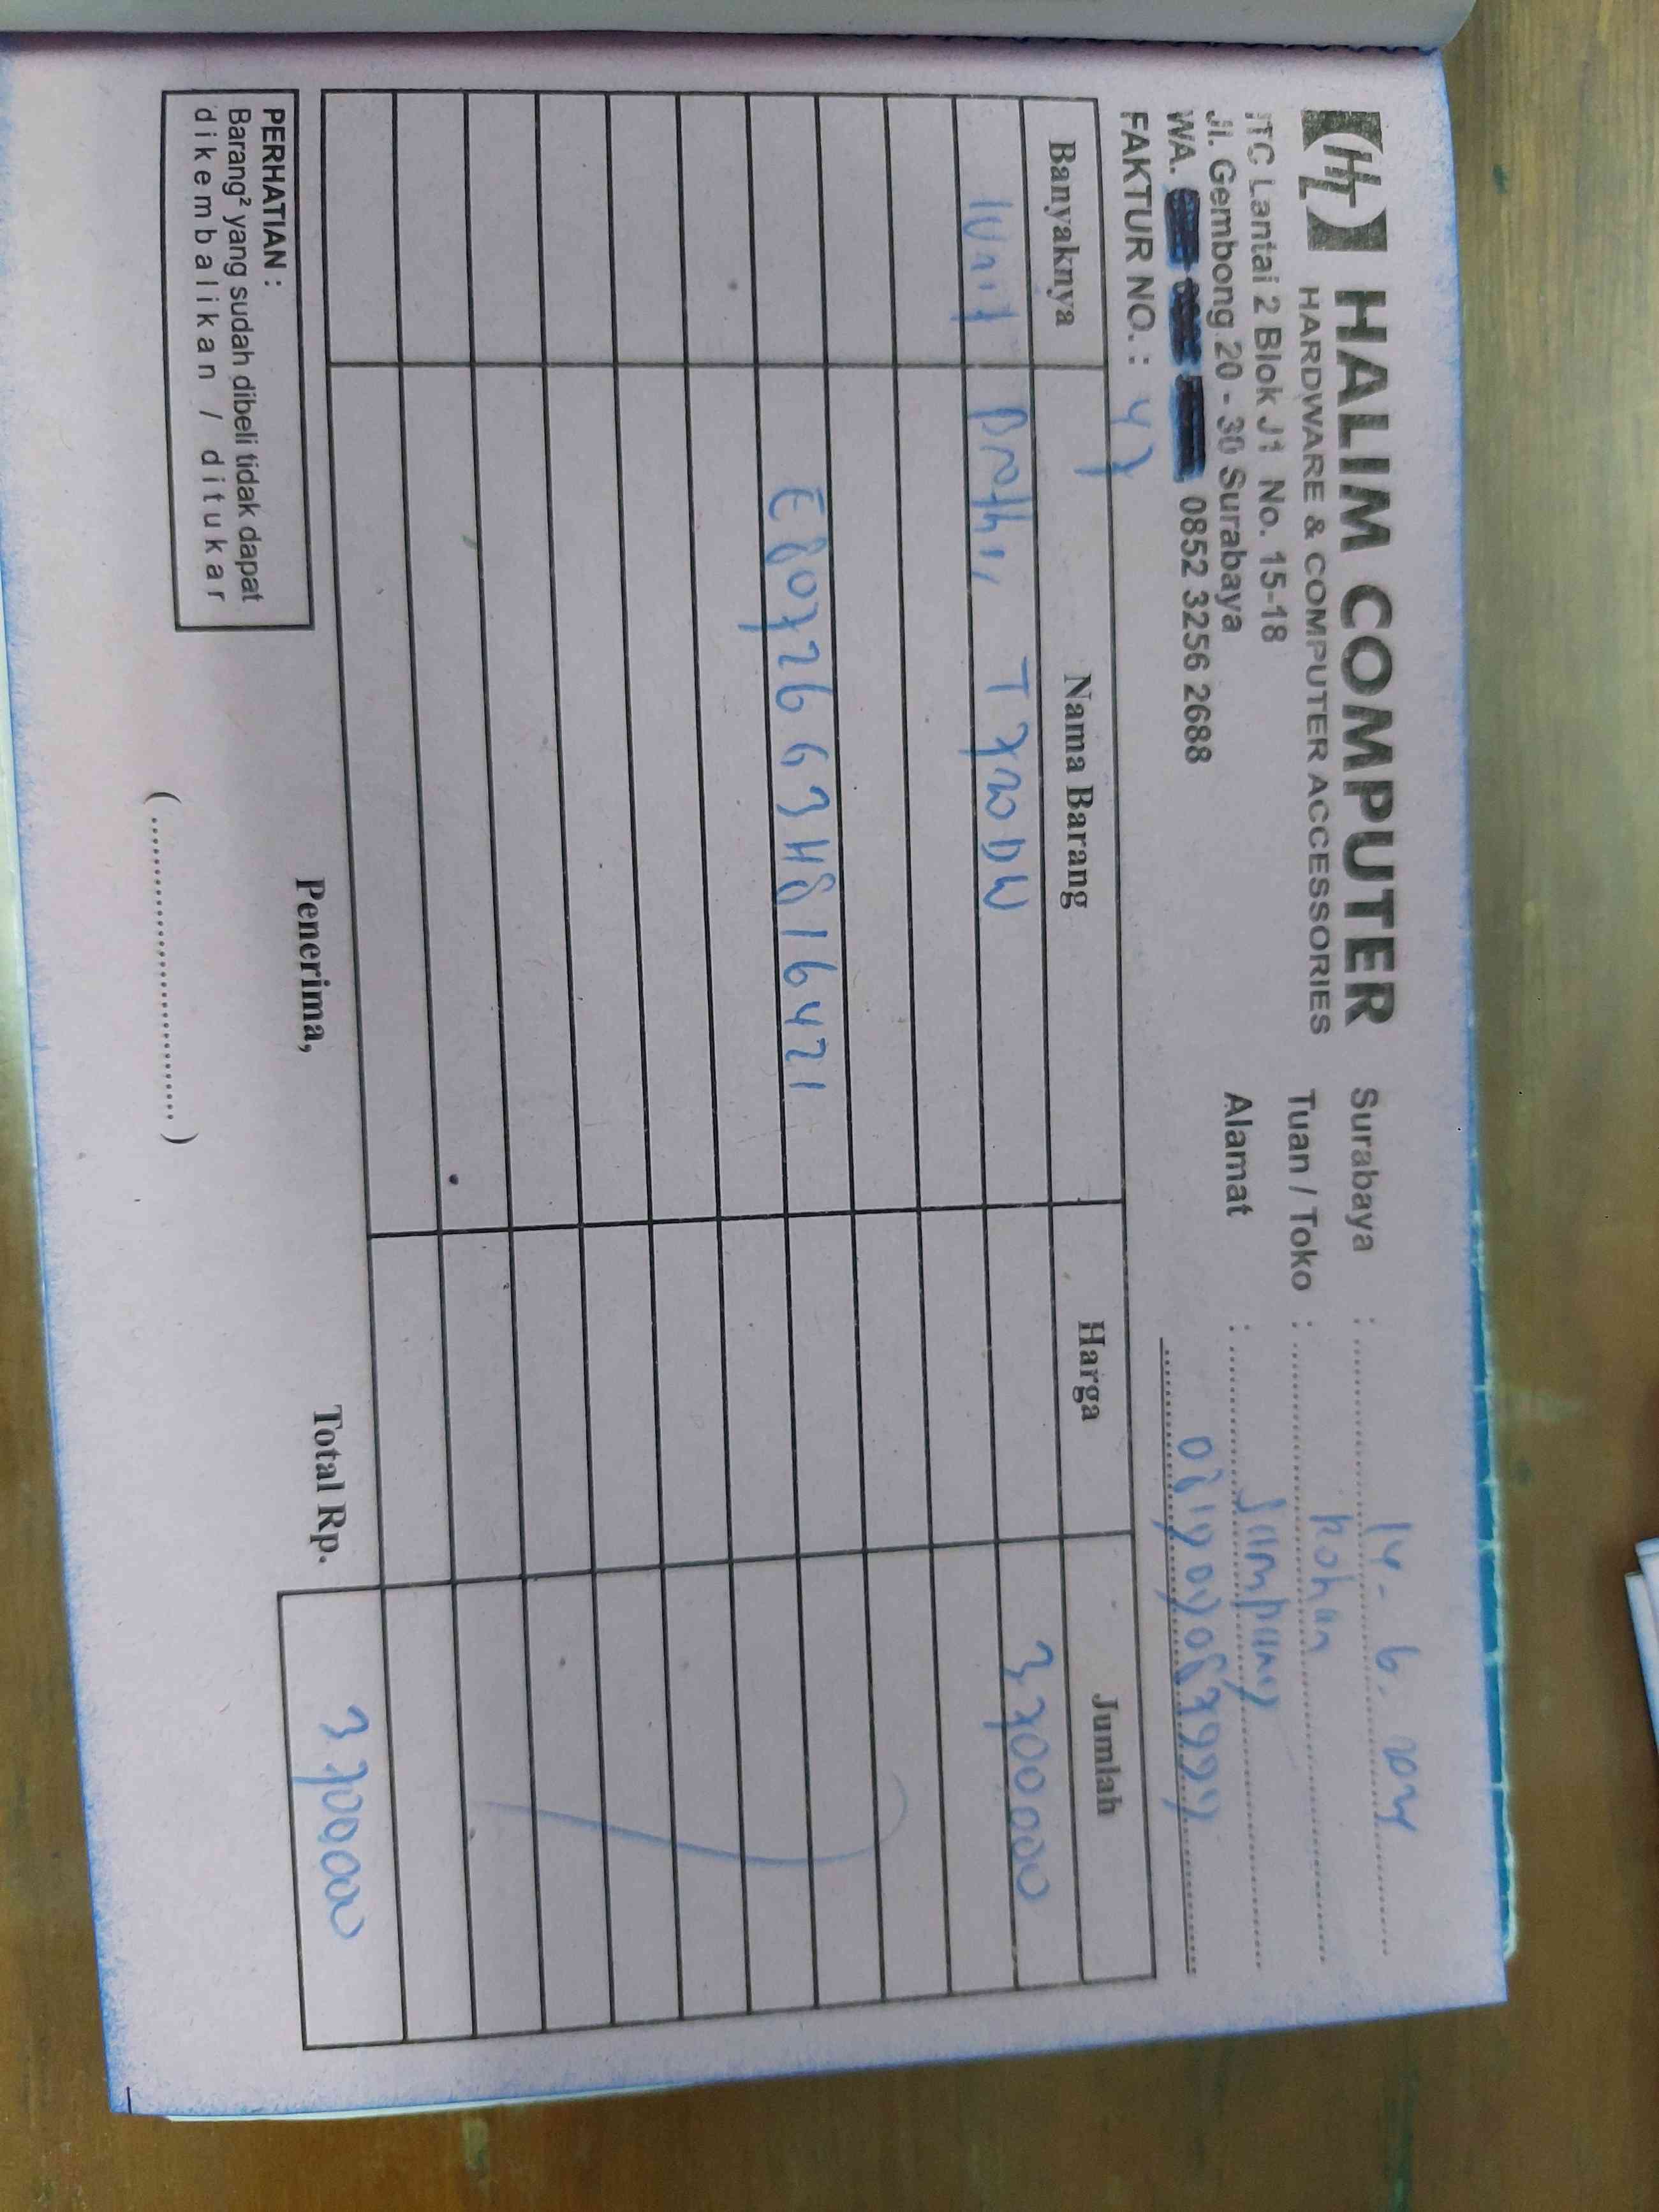 HALIM COMPUTER
HARDWARE & COMPUTER ACCESSORIES
ITC Lantai 2 Blok J1 No. 15-18
Jl. Gembong 20 - 30 Surabaya
WA. 0852 3256 2688
FAKTUR NO. : 47
Surabaya : 14 - 6 -
Tuan / Toko : Rohan
Alamat : Sampang
Banyaknya Nama Barang Harga Jumlah
1 Unit T720DW 3700.000
E80726 G3H816421
Total Rp. 3700.000
Penerima,
(..............................)
PERHATIAN :
Barang² yang sudah dibeli tidak dapat
dikembalikan / ditukar